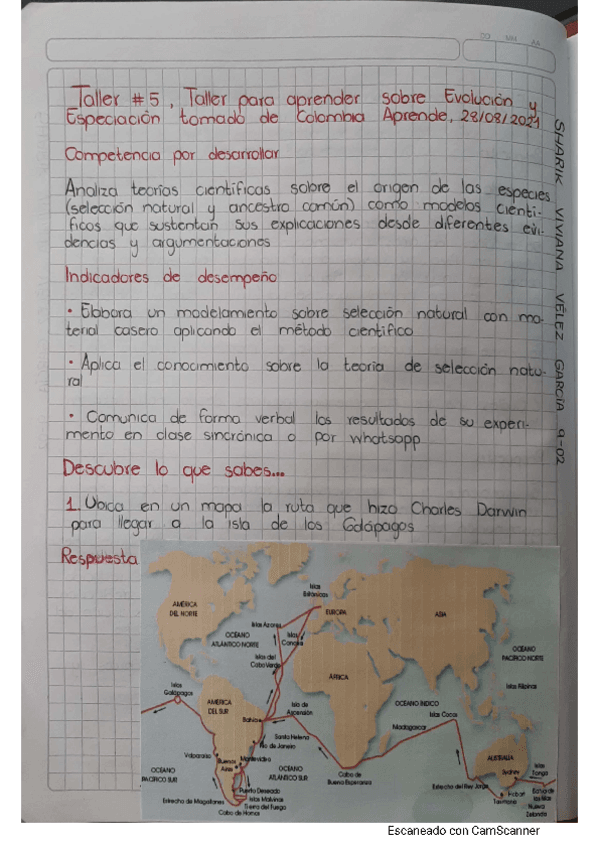 DD MM AA
Taller #5, Taller para aprender sobre Evolución y
Especiación tomado de Colombia Aprende, 28/08/2021
Competencia por desarrollar
Analiza teorías científicas sobre el origen de las especies
(selección natural y ancestro común) como modelos cientí-
ficos que sustentan sus explicaciones desde diferentes evi-
dencias y argumentaciones
Indicadores de desempeño
• Elabora un modelamiento sobre selección natural con ma-
terial casero aplicando el método científico
• Aplica el conocimiento sobre la teoría de selección natu-
ral
• Comunica de forma verbal los resultados de su experi-
mento en clase sincrónica o por whatsapp
Descubre lo que sabes...
1. Ubica en un mapa la ruta que hizo Charles Darwin
para llegar a la isla de las Galápagos
Respuesta
SHARIK VIVIANA VÉLEZ GARCÍA 9-02
AMÉRICA
DEL NORTE
Islas
Británicas
EUROPA
ASIA
Islas Azores
OCÉANO
ATLÁNTICO NORTE
Islas
Canarias
Islas del
Cabo Verde
ÁFRICA
OCÉANO
PACÍFICO NORTE
Islas Filipinas
Islas
Galápagos
AMÉRICA
DEL SUR
Bahía
Isla de
Ascensión
OCÉANO ÍNDICO
Islas Cocos
Madagascar
Santa Helena
Río de Janeiro
Valparaíso
Buenos
Aires
Montevideo
OCÉANO
PACÍFICO SUR
OCÉANO
ATLÁNTICO SUR
Cabo de
Buena Esperanza
AUSTRALIA
Sydney
Islas
Tonga
Puerto Deseado
Islas Malvinas
Estrecho de Magallanes
Tierra del Fuego
Cabo de Hornos
Estrecho del Rey Jorge
Hobart
Tasmania
Nueva
Zelanda
Escaneado con CamScanner